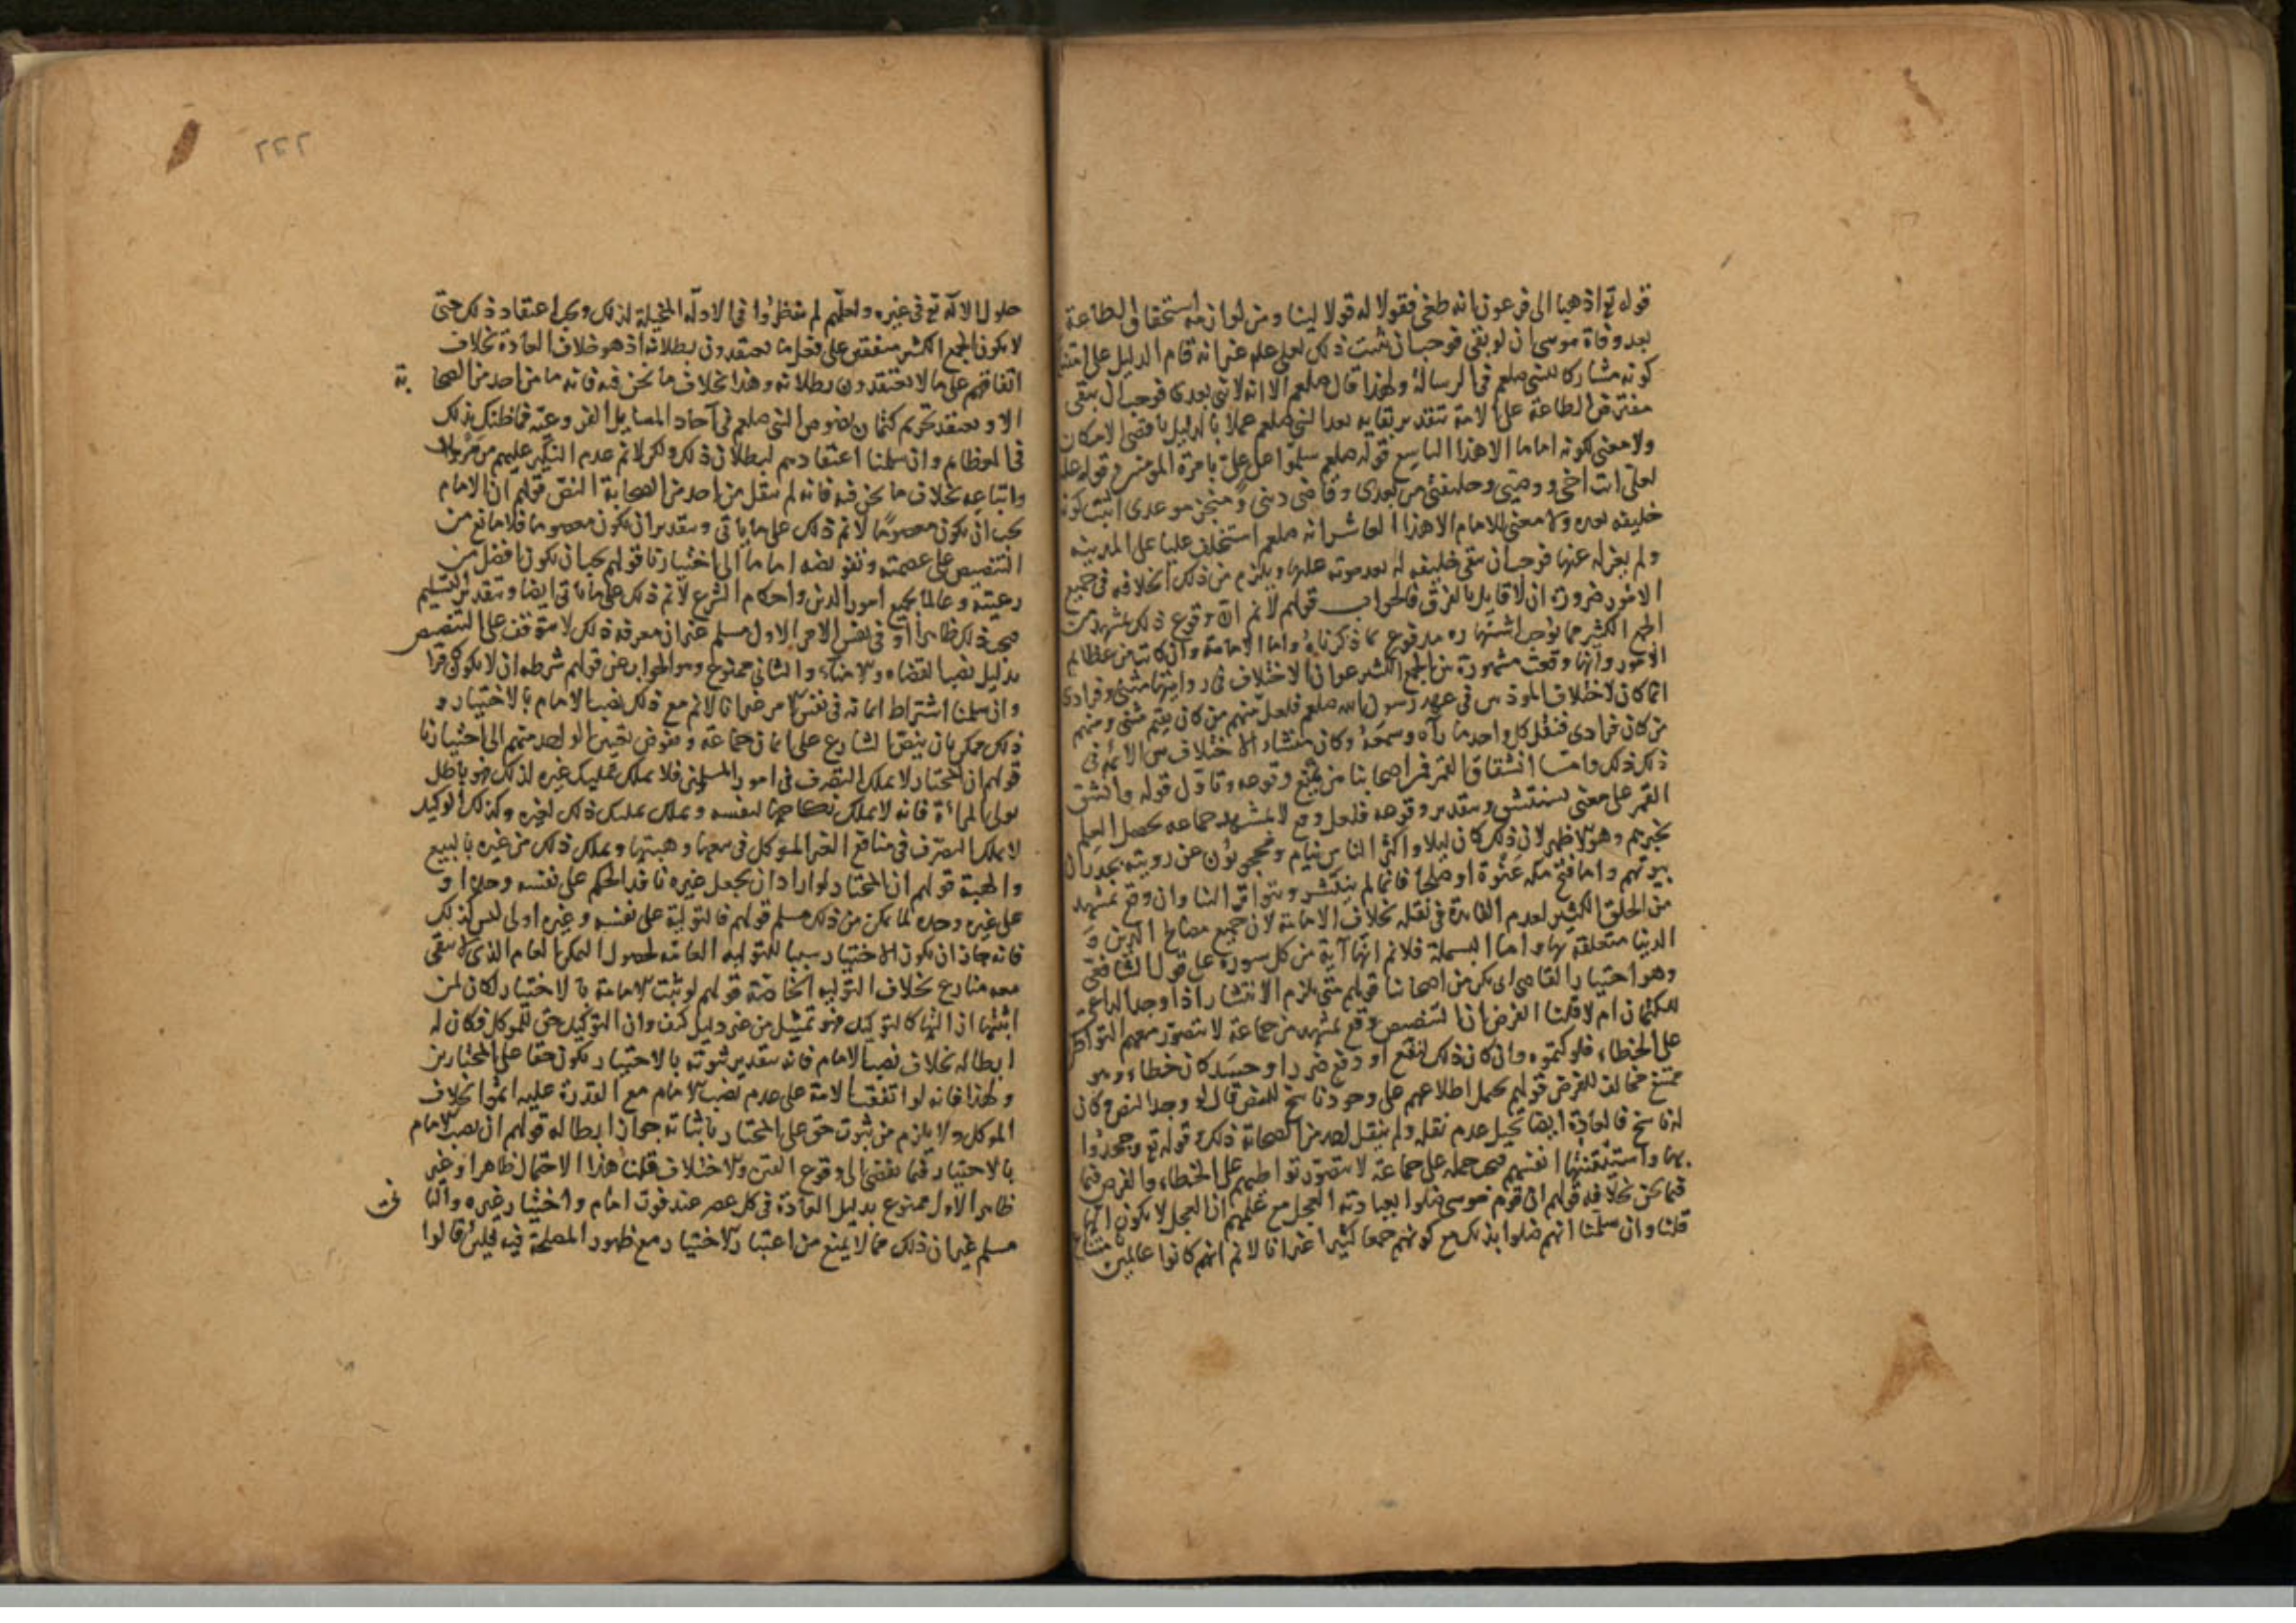 قوله تع اذهبا الى فرعون انه طغى فقولا له قولا لينا ومن لوازمه استحقاق الطاعة
بعد وفاة موسى ان لو بقى فوجب ان يثبت ذلك لعلى علم غير انه قام الدليل على امتناع
كونه مشاركا للنبى صلعم فى الرسالة ولهذا قال صلعم الا انه لا نبى بعدى فوجب ان يبقى
مفترض الطاعة على الامة بتقدير بقايه بعد النبى صلعم عملا بالدليل باقصى الامكان
ولا معنى لكونه اماما الا هذا التاسع قوله صلعم سلموا على على بامرة المؤمنين وقوله علم
لعلى انت اخى ووصيى وخليفتى من بعدى وقاضى دينى ومنجز موعدى اثبت كونه
خليفه بعده ولا معنى للامام الا هذا العاشر انه صلعم استخلف عليا على المدينه
ولم يعزله عنها فوجب ان يبقى خليفه له بعد موته عليها ويلزم من ذلك الخلافه فى جميع
الامور ضرورة ان لا قايل بالفرق فالجواب قولهم لا نم ان وقوع ذلك بمشهد من
الجمع الكثير مما يوجب اشتهاره مدفوع بما ذكرناه واما الاقامة وان كانت من عظايم
الامور وانها وقعت مشهورة من الجمع الكثير عوان الاختلاف فى روايتها مثنى وفرادى
انما كان لاختلاف الموذنين فى عهد رسول الله صلعم فلعل منهم من كان يقيم مثنى ومنهم
من كان فرادى فنقل كل واحد ما رآه وسمعه وكان منشاء الاختلاف بين الائمة فى
ذلك ذلك واما انشقاق القمر فمن اصحابنا من يمنع وقوعه وتاول قوله وانشق
القمر على معنى سينشق وبتقدير وقوعه فلعل وقع لا بمشهد جماعه يحصل العلم
بخبرهم وهو الاظهر لان ذلك كان ليلا واكثر الناس نيام ومحجوبون عن رويته بجدران
بيوتهم واما فتح مكه عنوة او صلحا فانما لم ينتشر ويتواتر الينا وان وقع بمشهد
من الخلق الكثير لعدم الفايدة فى نقله بخلاف الامامة لان جميع مصالح الدين و
الدنيا متعلقه بها واما البسملة فلا نم انها آية من كل سورة على قول الشافعى
وهو اختيار القاضى ابى بكر من اصحابنا قولهم متى يلزم الانتشار اذا وجد الداعى
للكتمان ام لا قلنا الفرض ان التنصيص وقع بمشهد من جماعة لا يتصور معهم التواطئ
على الخطاء فلو كتموه وان كان ذلك لنفع او دفع ضرر او حسد كان خطاء وهو
ممتنع مخالف للفرض قولهم يحمل اطلاعهم على وجود ناسخ للنص قال لو وجد النص وكان
له ناسخ فالعادة ايضا تحيل عدم نقله ولم ينقل احد من الصحابة ذلك قوله تع وجحدوا
بها واستيقنتها انفسهم فيجب حمله على جماعة لا يتصور تواطيهم على الخطاء والفرض فيما
فيما نحن خلافه قولهم ان قوم موسى ضلوا بعبادته العجل مع علمهم ان العجل لا يكون الها
قلنا وان سلمنا انهم ضلوا بذلك مع كونهم جمعا كثيرا غير انا لا نم انهم كانوا عالمين بامتناع
٢٥٢
حلول الاله تع فى غيره ولعلهم لم ينظروا فى الادله المخيلة لذلك وبما اعتقاد ذلك حتى
لا يكون الجمع الكثير متفقين على فعل ما يعتقدون بطلانه اذ هو خلاف العادة بخلاف
اتفاقهم على ما لا يعتقدون بطلانه وهذا بخلاف ما نحن فيه فانه ما من احد من الصحابة
الا ويعتقد تحريم كتمان نصوص النبى صلعم فى آحاد المسايل الفروعية فما ظنك بذلك
فى العظايم وان سلمنا اعتقادهم لبطلان ذلك ولكن لا نم عدم النكير عليهم من هرون
واتباعه بخلاف ما نحن فيه فانه لم ينقل من احد من الصحابة النص قولهم ان الامام
يجب ان يكون معصوما لا نم ذلك على ما ياتى وبتقدير ان يكون معصوما فلا مانع من
التنصيص على عصمته وتفويضه اماما الى اختيارنا قولهم يجب ان يكون افضل من
رعيته وعالما بجميع امور الدين واحكام الشرع لا نم ذلك على ما ياتى ايضا وبتقدير التسليم
فيجب ذلك ظاهرا او فى نفس الامر الاول مسلم غير ان معرفة ذلك لا تتوقف على التنصيص
بدليل نصب القضاه والامناء والثانى ممنوع وهو الجواب عن قولهم شرطه ان لا يكون كافرا
وان سلمنا اشتراط ايمانه فى نفس الامر غير انا لا نم مع ذلك نصب الامام بالاختيار و
ذلك ممكن بان ينص الشارع على ايمان جماعة ويفوض تعيين الواحد منهم الى اختيارنا
قولهم ان المختار لا يملك التصرف فى امور المسلمين فلا يملك تمليك غيره لذلك فهو باطل
بولى المراة فانه لا يملك نكاحها لنفسه ويملك تمليك ذلك لغيره وكذلك الوكيل
لا يملك التصرف فى منافع العين الموكل فى بيعها وهبتها ويملك ذلك من غيره بالبيع
والهبة قولهم ان المختار لو اراد ان يجعل غيره نافذ الحكم على نفسه وحده او
على غيره وحده لما يمكن من ذلك مسلم قولهم فالتولية على نفسه وغيره اولى ليس كذلك
فانه جاز ان يكون الاختيار سببا للتوليه العامة لحصول التمكن العام الذى لا يبقى
معه منازع بخلاف التوليه الخاصة قولهم لو ثبت الامامة بالاختيار لكان لمن
اثبتها ازالتها كالتوكيل فهو تمثيل من غير دليل كيف وان التوكيل حق للموكل فكان له
ابطاله بخلاف نصب الامام فانه بتقدير ثبوته بالاختيار يكون حقا على المختارين
ولهذا فانه لو اتفقت الامة على عدم نصب الامام مع القدرة عليه اثموا بخلاف
الموكل ولا يلزم من ثبوت حق على المختار باثباته جواز ابطاله قولهم ان نصب الامام
بالاختيار فيما يفضى الى وقوع الفتن والاختلاف قلنا هذا الاحتمال ظاهرا وغير
ظاهر الاول ممنوع بدليل العادة فى كل عصر عند فوت امام واختيار غيره والثانى
مسلم غير ان ذلك مما لا يمنع من اعتبار الاختيار مع ظهور المصلحة فيه فلين قالوا